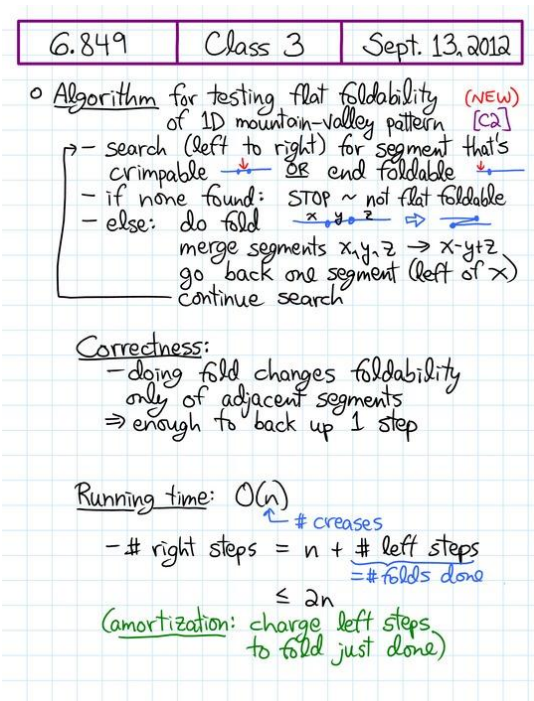 6.849 Class 3 Sept. 13, 2012
○ Algorithm for testing flat foldability (NEW)
of 1D mountain-valley pattern [C2]
- search (left to right) for segment that's
crimpable OR end foldable
- if none found: STOP ~ not flat foldable
- else: do fold x y z ⇒
merge segments x, y, z → x-y+z
go back one segment (left of x)
continue search
Correctness:
- doing fold changes foldability
only of adjacent segments
⇒ enough to back up 1 step
Running time: O(n)
# creases
- # right steps = n + # left steps
= # folds done
≤ 2n
(amortization: charge left steps
to fold just done)